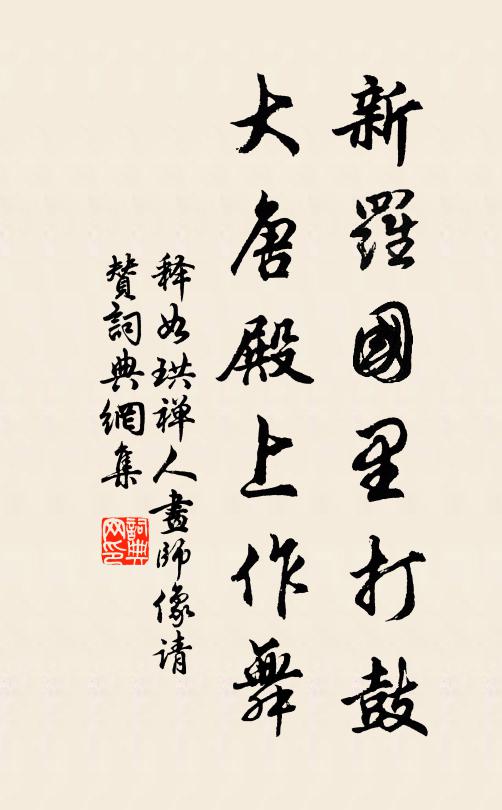 新羅國里打鼓
大唐殿上作舞
释如珙禅人畫師像请
贊詞典網集
詞典网印